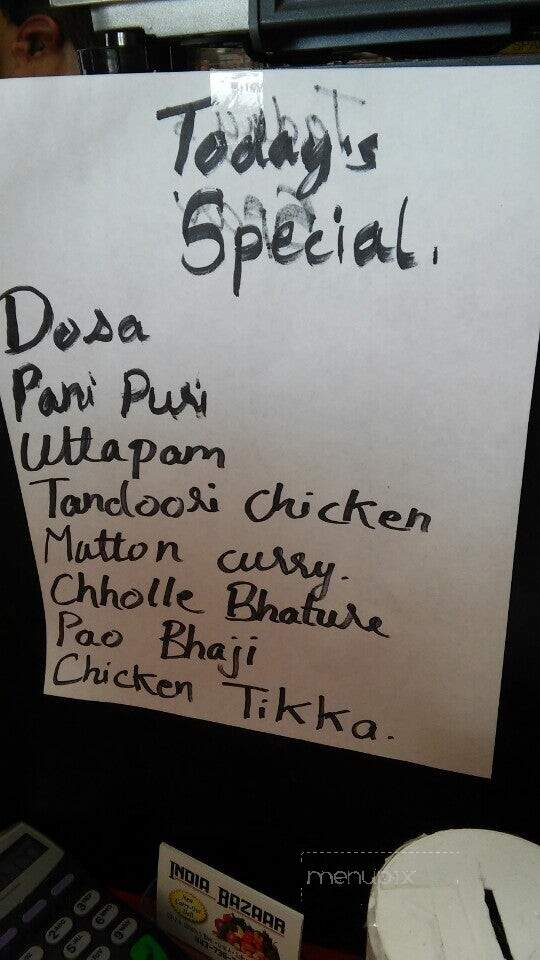 Today's
Special.
Dosa
Pani Puri
Uttapam
Tandoori chicken
Mutton curry.
Chholle Bhature
Pao Bhaji
Chicken Tikka.
INDIA BAZAAR
menupix